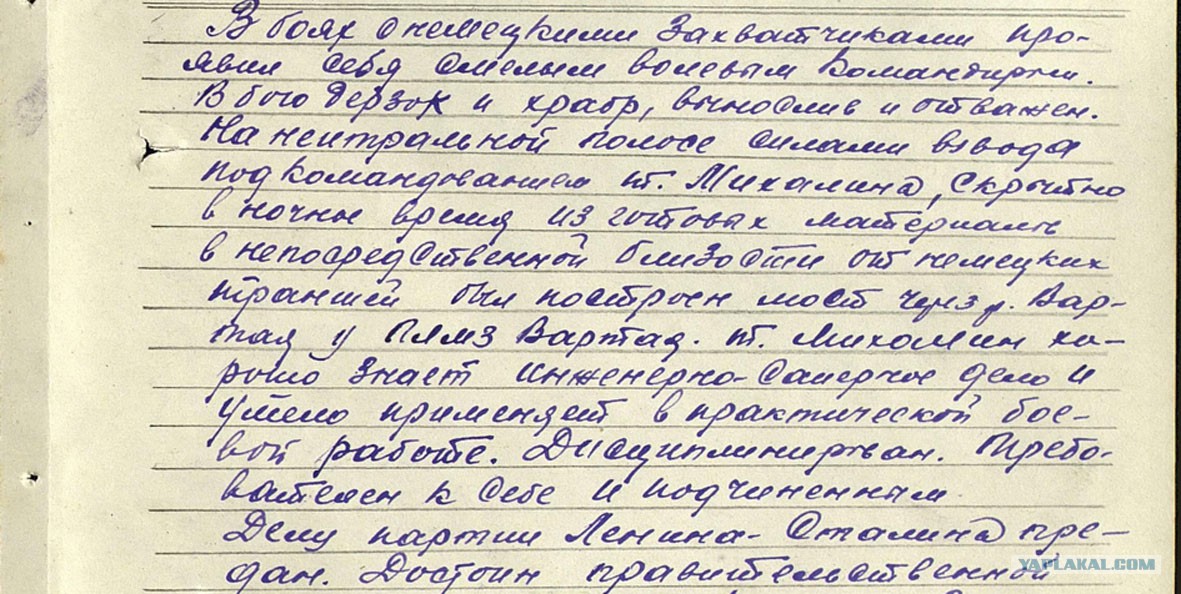 В боях с немецкими захватчиками про-
явил себя смелым волевым командиром.
В бою дерзок и храбр, вынослив и отважен.
На неитральной полосе силами взвода
под командованием т. Михалина, скрытно
в ночные время из готовых материалов
в непосредственной близости от немецких
траншей был построен мост через р. Вар-
тая у Вартая. т. Михалин хо-
рошо знает инженерно-саперное дело и
умело применяет в практической бое-
вой работе. Дисциплинирован. Требо-
вателен к себе и подчиненным
Делу партии Ленина-Сталина пре-
дан. Достоин правительственной
YAPLAKAL.COM